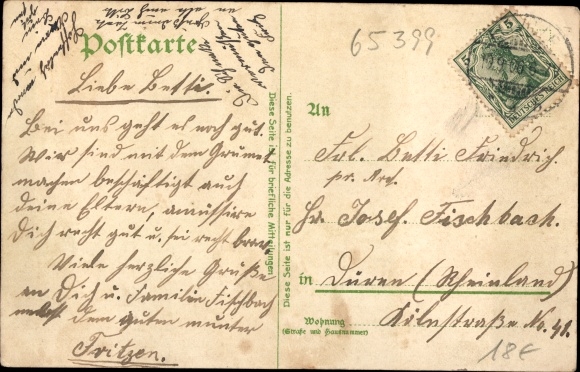 Postkarte
Liebe Betti.
Bei uns geht es noch gut.
Wir sind mit dem Grumet
machen beschäftigt auch
deine Eltern, amussire
Dich recht gut u. sei recht brav.
Viele herzliche Grüße
an Dich u. Familie Fischbach
nebst dem guten munter
Fritzen.
Diese Seite ist für briefliche Mitteilungen
Diese Seite ist nur für die Adresse zu benutzen.
65399
5 5
DEUTSCHES
An
Frl. Betti Friedrich.
pr. Adr.
Hr. Josef Fischbach.
in Düren (Rheinland)
Wohnung Kölnstraße No. 41.
(Straße und Hausnummer)
18E